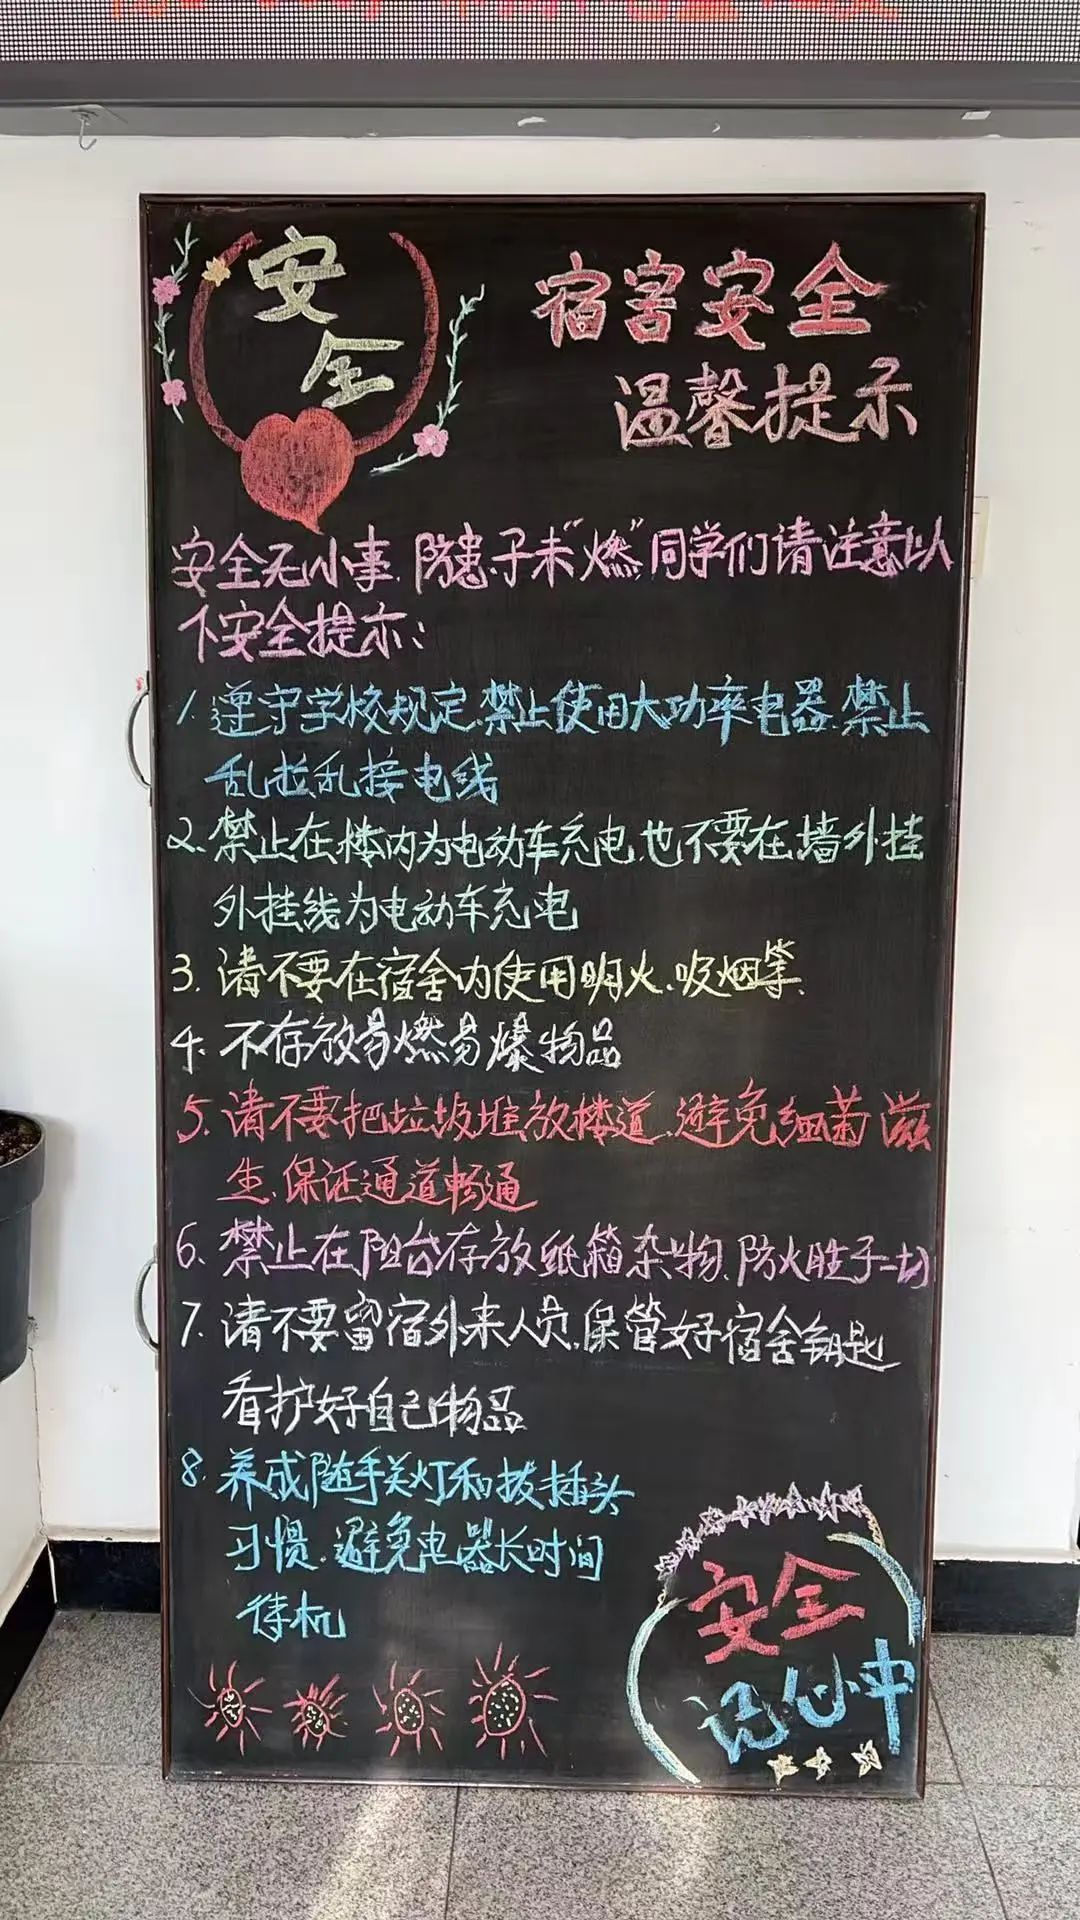 安
全
宿害安全
温馨提示
安全无小事.防患于未"燃"同学们请注意以
下安全提示:
1.遵守学校规定.禁止使用大功率电器.禁止
乱拉乱接电线
2.禁止在楼内为电动车充电.也不要在墙外挂
外挂线为电动车充电
3.请不要在宿舍内使用明火.吸烟等.
4.不存放易燃易爆物品
5.请不要把垃圾堆放楼道.避免细菌滋
生.保证通道畅通
6.禁止在阳台存放纸箱杂物.防火胜于一切
7.请不要留宿外来人员.保管好宿舍钥匙
看护好自己物品
8.养成随手关灯和拔插头
习惯.避免电器长时间
待机
安全
记心中